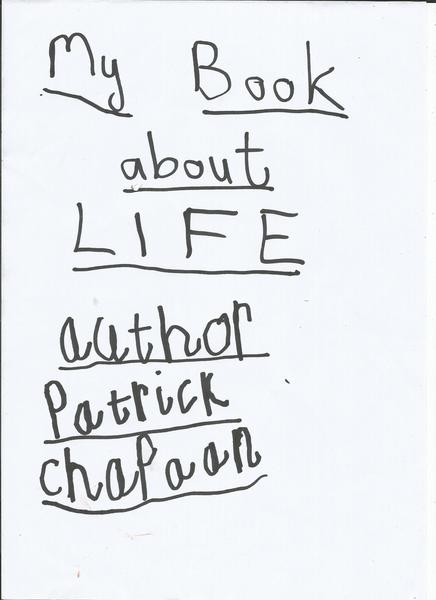 My Book
about
LIFE
author
Patrick
chapaan